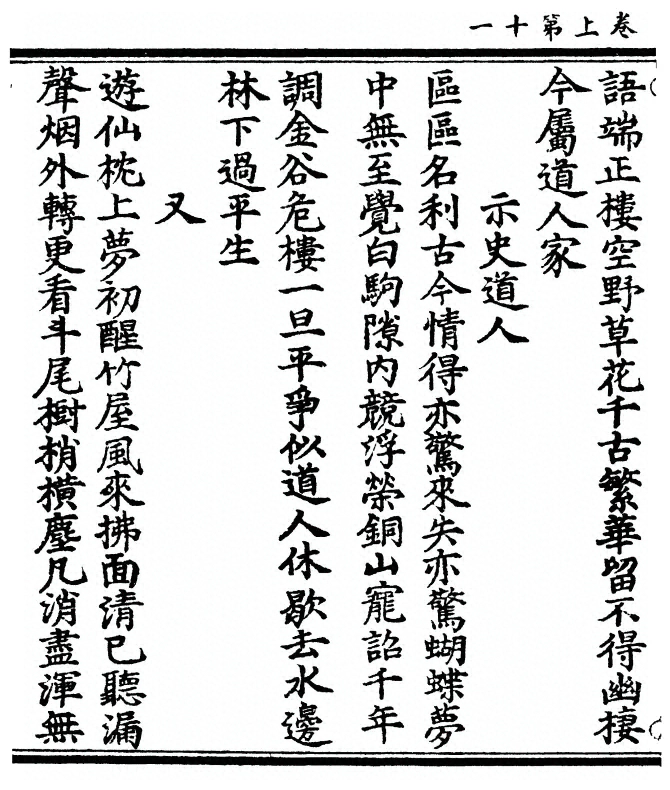 卷上第十一
語端正樓空野草花千古繁華留不得幽棲
今屬道人家
示史道人
區區名利古今情得亦驚來失亦驚蝴蝶夢
中無至覺白駒隙內競浮榮銅山寵詔千年
調金谷危樓一旦平爭似道人休歇去水邊
林下過平生
又
遊仙枕上夢初醒竹屋風來拂面清已聽漏
聲烟外轉更看斗尾樹梢橫塵凡消盡渾無